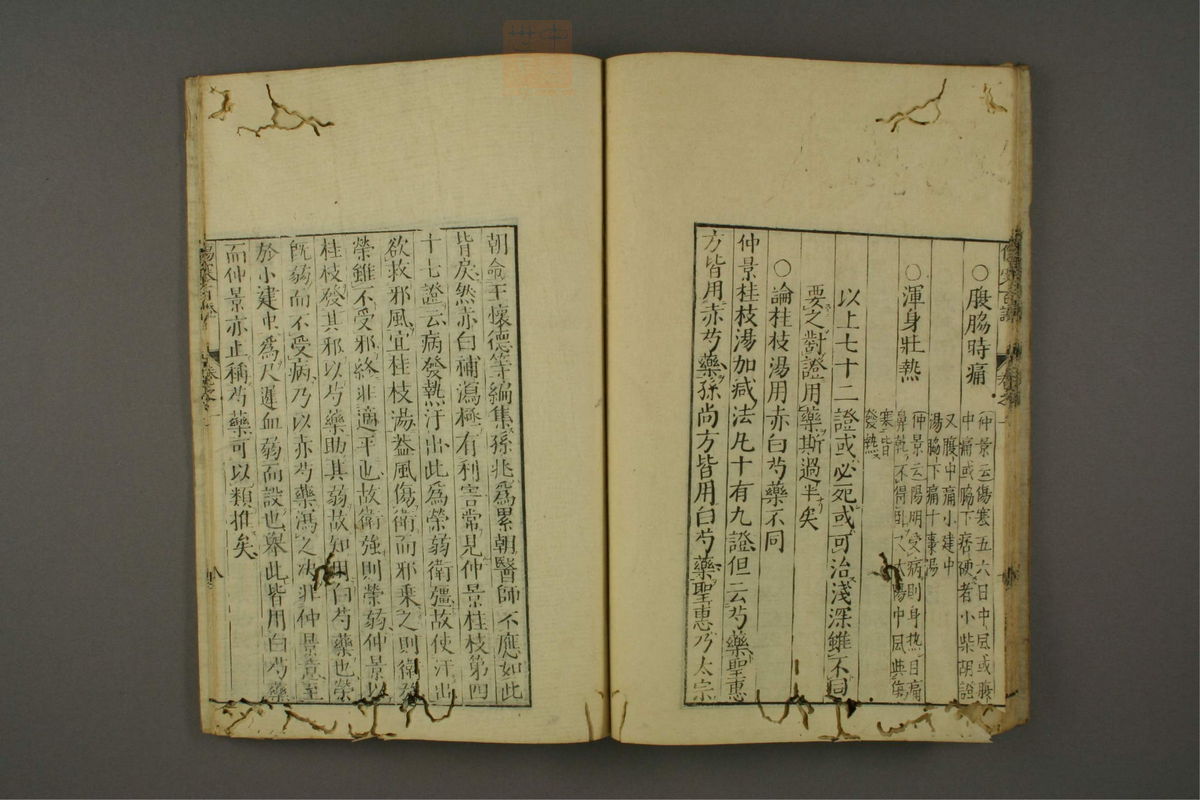 ○腹脇時痛
仲景云傷寒五六日中風或腹
中痛或脇下痞硬者小柴胡證
又腹中痛小建中
湯脇下痛十棗湯
○渾身壯熱
仲景云陽明受病則身热目痛
鼻乾不得臥又太陽中風與傷
寒皆
發熱
以上七十二證或必死或可治淺深雖不同
要之對證用藥斯過半矣
○論桂枝湯用赤白芍藥不同
仲景桂枝湯加减法凢十有九證但云芍藥聖惠
方皆用赤芍藥孫尚方皆用白芍藥聖惠乃太宗
朝命王懷德等編集孫兆爲累朝醫師不應如此
皆戾然赤白補瀉極有利害常見仲景桂枝第四
十七證云病發熱汗出此爲榮弱衛彊故使汗出
欲救邪風宜桂枝湯蓋風傷衛而邪乘之則衛強
榮雖不受邪終非適平也故衛強則榮弱仲景以
桂枝發其邪以芍藥助其弱故知用白芍藥也榮
旣弱而不受病乃以赤芍藥瀉之决非仲景意至
於小建中爲尺遲血弱而設也舉此皆用白芍藥
而仲景亦止稱芍藥可以類推矣